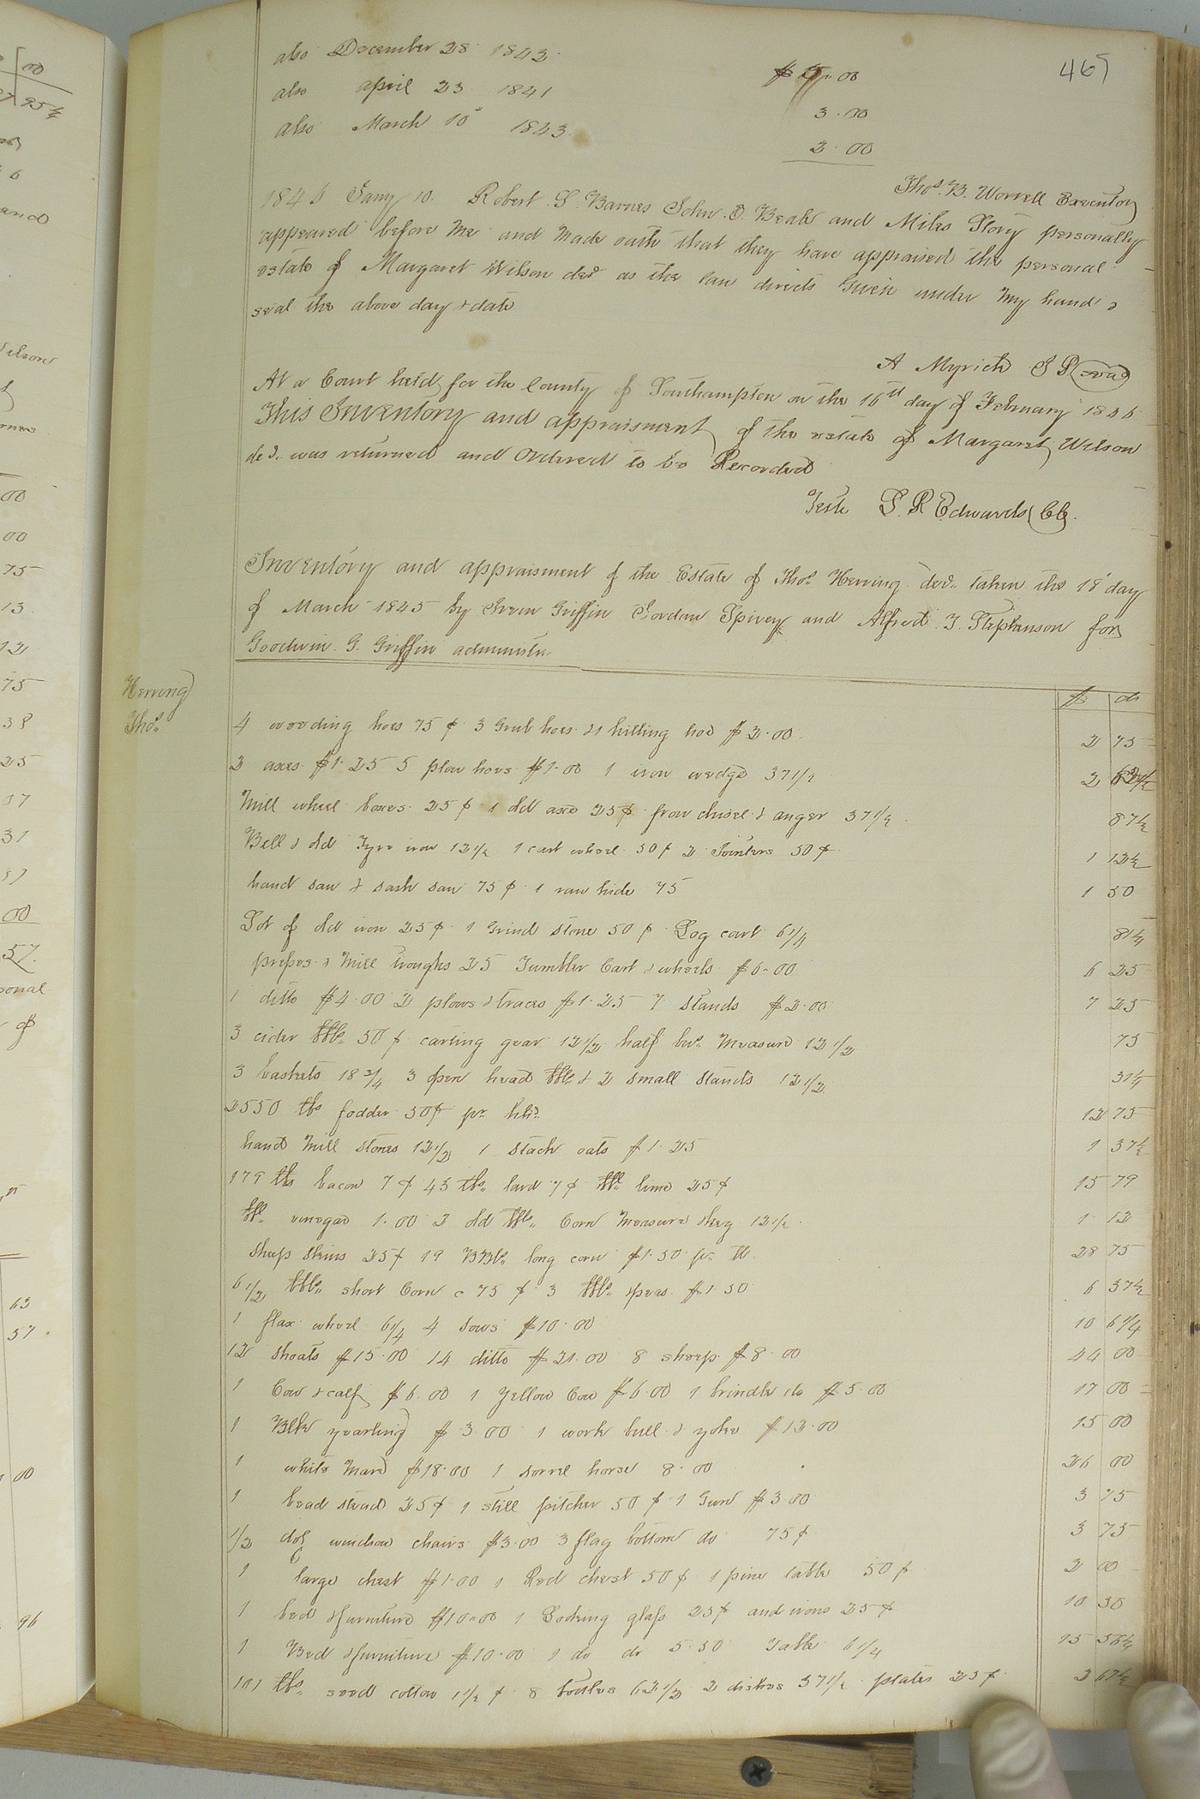 465
also December 28 1842 $5.00
also april 23 1841 3.00
also March 10th 1843 2.00
Thos. B. Worrell Executor
1846 Jany 10. Robert S. Barnes John D. Beale and Miles Story personally
appeared before me and made oath that they have appraised the personal
estate of Margaret Wilson decd as the law directs Given under my hand &
seal the above day & date
A Myrick J P (seal)
At a Court held for the County of Southampton on the 16th day of February 1846
This Inventory and appraisment of the estate of Margaret Wilson
decd. was returned and Ordered to be Recorded
Teste L. R Edwards Clk.
Inventory and appraisment of the Estate of Thos. Herring decd. taken the 18th day
of March 1845 by Irvin Griffin Jordan Spivey and Alfred J. Stephenson for
Goodwin G. Griffin administr.
Herring
Thos.
$ cts
4 weeding hoes 75 ¢ 3 Grub hoes & 1 hilling hoe $2.00 2 75
2 axes $1.25 5 plow hoes $1.00 1 iron wedge 37 1/2 2 62 1/2
Mill wheel boxes 25 ¢ 1 old axe 25 ¢ frow chisel & auger 37 1/2 87 1/2
Bell & old Tyre iron 12 1/2 1 cart wheel 50 ¢ 2 Jointers 50 ¢ 1 12 1/2
hand saw & sash saw 75 ¢ 1 raw hide 75 1 50
Lot of old iron 25 ¢ 1 Grind stone 50 ¢ Log cart 6 1/4 81 1/4
& Mill troughs 25 Tumbler Cart & wheels $6.00 6 25
1 ditto $4.00 2 plows & traces $1.25 7 stands $2.00 7 25
3 cider bbls. 50 ¢ carting gear 12 1/2 half bus. Measure 12 1/2 75
3 baskets 18 3/4 3 open head bbls & 2 small stands 12 1/2 31 1/4
2550 lbs fodder 50 ¢ pr. hd. 12 75
hand Mill stones 12 1/2 1 stack oats $1.25 1 37 1/2
179 lbs bacon 7 ¢ 43 lbs. lard 7 ¢ bbl. lime 25 ¢ 15 79
bbl. vinegar 1.00 2 old bbls. Corn Measure & keg 12 1/2 1 12
sheep skins 25 ¢ 19 BBls. long corn $1.50 pr. bl. 28 75
6 1/2 bbls. short Corn @ 75 ¢ 3 bbls. peas $1.50 6 37 1/2
1 flax wheel 6 1/4 4 sows $10.00 10 6 1/4
12 shoats $15.00 14 ditto $21.00 8 sheep $8.00 44 00
1 Cow & calf $6.00 1 Yellow Cow $6.00 1 brindle do $5.00 17 00
1 Blk yearling $3.00 1 work bull & yoke $12.00 15 00
1 white Mare $18.00 1 sorrel horse 8.00 26 00
1 bead stead 25 ¢ 1 still pitcher 50 ¢ 1 Gun $3.00 3 75
1/2 doz windsor chairs $3.00 3 flag bottom do 75 ¢ 3 75
1 large chest $1.00 1 Red chest 50 ¢ 1 pine table 50 ¢ 2 00
1 bed & furniture $10.00 1 Looking glass 25 ¢ and irons 25 ¢ 10 50
1 Bed & furniture $10.00 1 do do 5.50 Table 6 1/4 15 56 1/4
101 lbs. seed cotton 1 1/2 ¢ 8 bottles 62 1/2 2 dishes 37 1/2 plates 25 ¢ 2 67 1/2